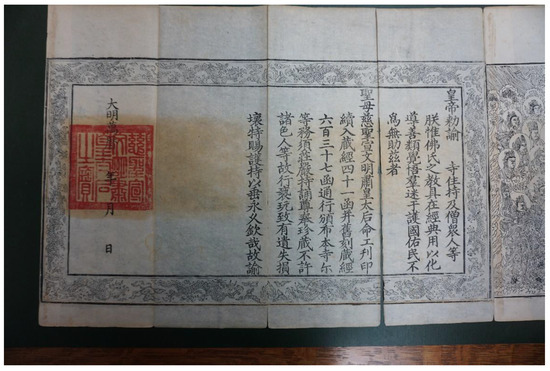 皇帝勑諭　寺住持及僧衆人等
朕惟佛氏之教具在經典用以化
導善類覺悟羣迷于護國佑民不
爲無助兹者
聖母慈聖宣文明肅皇太后命工刊印
續入藏經四十一函并舊刻藏經
六百三十七函通行頒布本寺尔
等務須莊嚴持誦尊崇珍藏不許
諸色人等故行褻玩致有遺失損
壞特賜護持以垂永久欽哉故諭
大明萬　年　月　日
慈聖宣文明肅皇太后之寶